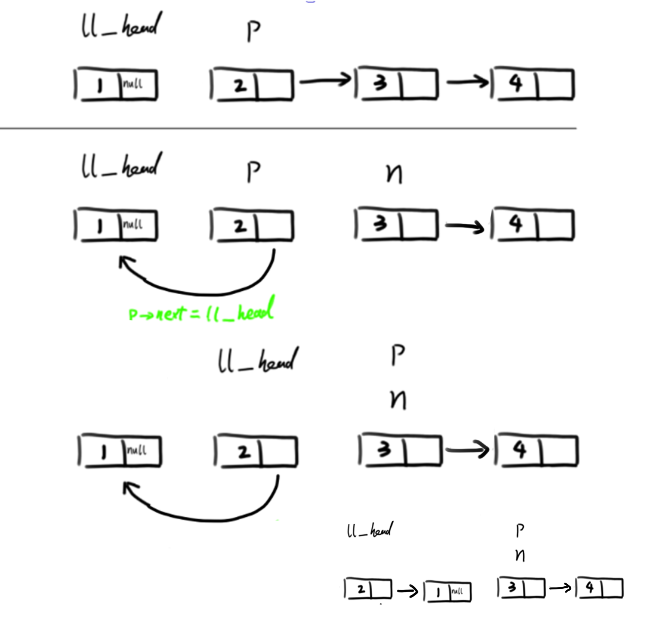 ll_head P
1 null 2 3 4
ll_head P n
1 null 2 3 4
P→next = ll_head
ll_head P
n
1 null 2 3 4
ll_head P
n
2 1 null 3 4